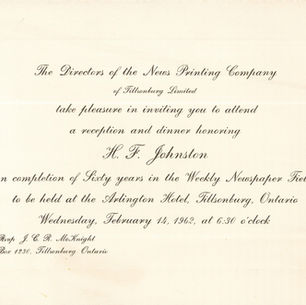 The Directors of the News Printing Company
of Tillsonburg Limited
take pleasure in inviting you to attend
a reception and dinner honoring
H. F. Johnston
on completion of Sixty years in the Weekly Newspaper Fiel
to be held at the Arlington Hotel, Tillsonburg, Ontario
Wednesday, February 14, 1962, at 6:30 o'clock
Rsvp J. C. R. McKnight
Box 1230, Tillsonburg Ontario